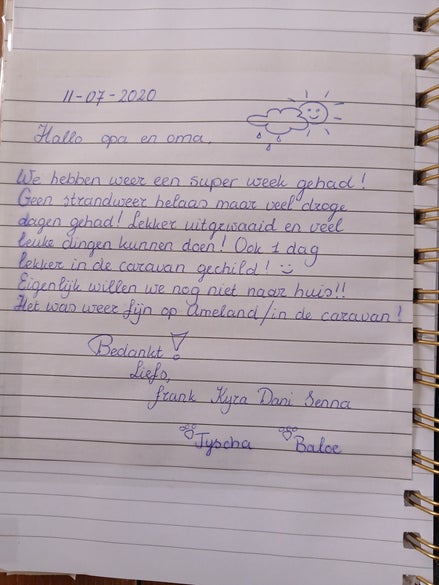 11-07-2020
Hallo opa en oma,
We hebben weer een super week gehad!
Geen strandweer helaas maar veel droge
dagen gehad! Lekker uitgewaaid en veel
leuke dingen kunnen doen! Ook 1 dag
lekker in de caravan gechild!
Eigenlijk willen we nog niet naar huis!!
Het was weer fijn op Ameland/in de caravan!
Bedankt!
Liefs,
Frank Kyra Dani Senna
Tyscha Baloe